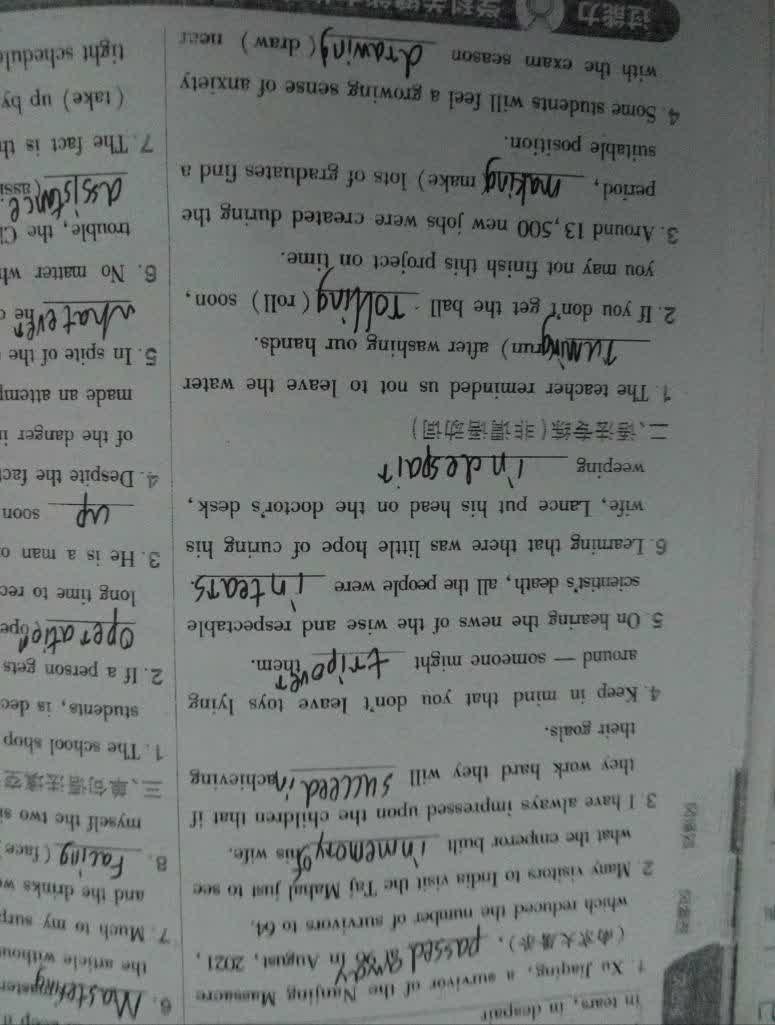 in tears, in despair
1. Xu Jiaqing, a survivor of the Nanjing Massacre
(南京大屠杀), passed away in August, 2021,
which reduced the number of survivors to 64.
2. Many visitors to India visit the Taj Mahal just to see
what the emperor built in memory of his wife.
3. I have always impressed upon the children that if
they work hard they will succeed in achieving
their goals.
4. Keep in mind that you don't leave toys lying
around — someone might trip over them.
5. On hearing the news of the wise and respectable
scientist's death, all the people were in tears.
6. Learning that there was little hope of curing his
wife, Lance put his head on the doctor's desk,
weeping in despair
二、语法专练(非谓语动词)
1. The teacher reminded us not to leave the water
running (run) after washing our hands.
2. If you don't get the ball rolling (roll) soon,
you may not finish this project on time.
3. Around 13,500 new jobs were created during the
period, making (make) lots of graduates find a
suitable position.
4. Some students will feel a growing sense of anxiety
with the exam season drawing (draw) near
过能力
6. Mastering (master
the article without
7. Much to my surp
and the drinks w
8. Facing (face
myself the two si
三、单句语法填空
1. The school shop
students, is dec
2. If a person gets
operation (ope
long time to rec
3. He is a man o
up soon
4. Despite the fact
of the danger i
made an attemp
5. In spite of the
whatever he
6. No matter wh
trouble, the Ch
assistance (assi
7. The fact is th
(take) up by
tight schedule